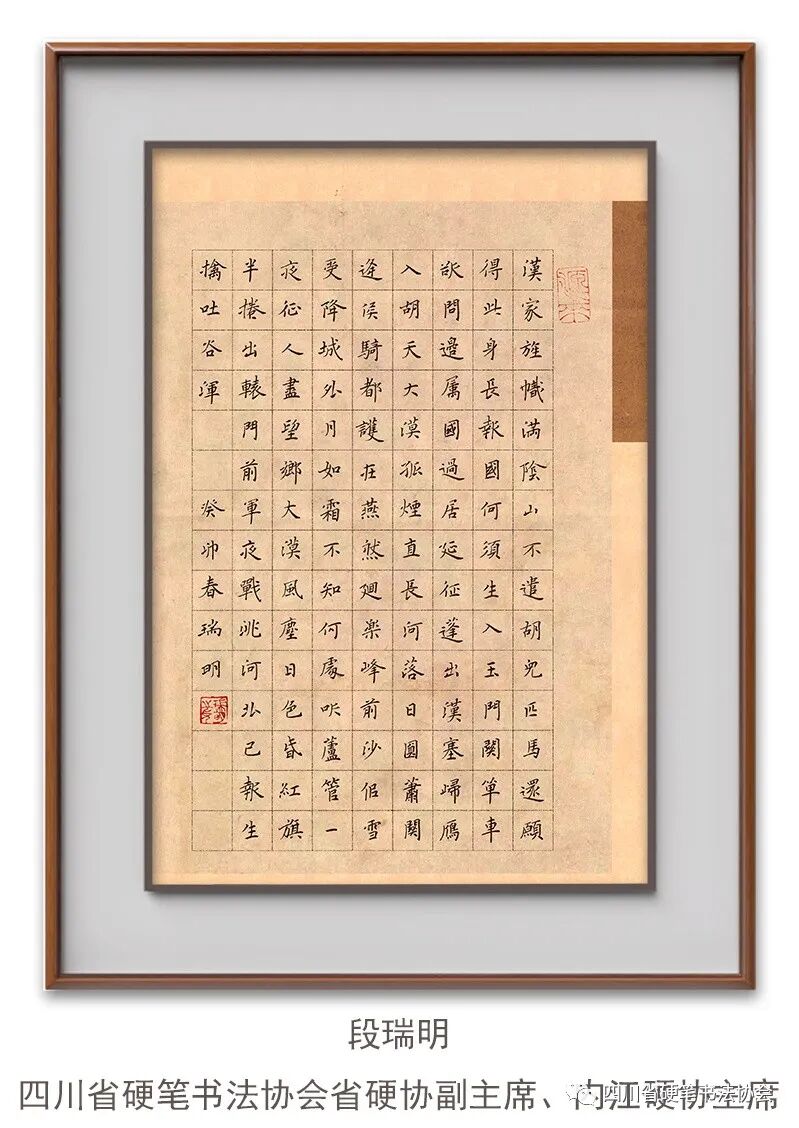 漢家旌幟滿陰山不遣胡兒匹馬還願
得此身長報國何須生入玉門關單車
欲問邊屬國過居延征蓬出漢塞歸鴈
入胡天大漠孤煙直長河落日圓蕭關
逢候騎都護在燕然廻樂峰前沙佀雪
受降城外月如霜不知何處吹蘆管一
夜征人盡望鄉大漠風塵日色昏紅旗
半捲出轅門前軍夜戰洮河北已報生
擒吐谷渾 癸卯春瑞明
段瑞明
四川省硬笔书法协会省硬协副主席、内江硬协主席
四川省硬笔书法协会